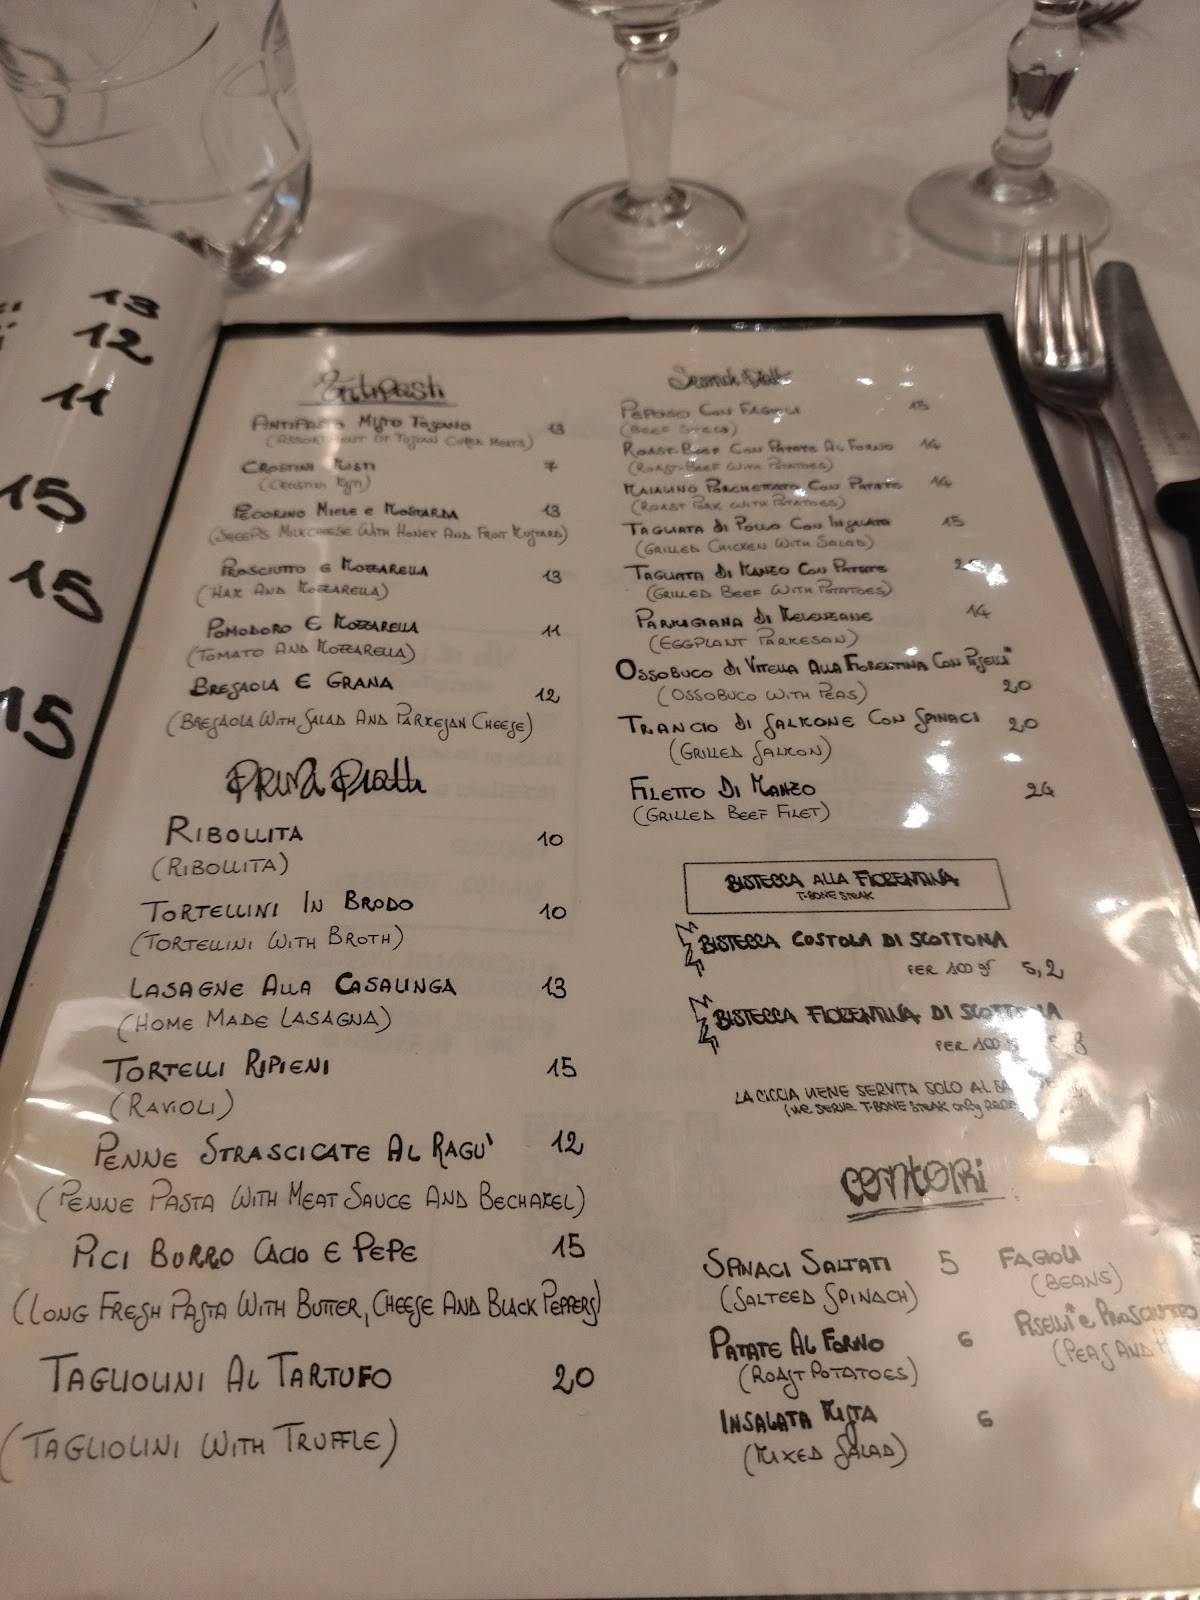 13
12
11
15
15
15
Antipasti
Antipasto Misto Toscano 13
(Assortment of Tuscan Cured Meats)
Crostini Misti 7
(Crostini Mix)
Pecorino Miele e Mostarda 13
(Sheep's Milk Cheese With Honey And Fruit Mustard)
Prosciutto e Mozzarella 13
(Ham And Mozzarella)
Pomodoro E Mozzarella 11
(Tomato And Mozzarella)
Bresaola E Grana 12
(Bresaola With Salad And Parmesan Cheese)
Primi Piatti
Ribollita 10
(Ribollita)
Tortellini In Brodo 10
(Tortellini With Broth)
Lasagne Alla Casalinga 13
(Home Made Lasagna)
Tortelli Ripieni 15
(Ravioli)
Penne Strascicate Al Ragu' 12
(Penne Pasta With Meat Sauce And Bechamel)
Pici Burro Cacio E Pepe 15
(Long Fresh Pasta With Butter, Cheese And Black Peppers)
Tagliolini Al Tartufo 20
(Tagliolini With Truffle)
Secondi Piatti
Peposo Con Fagioli 15
(Beef Stew)
Roast-Beef Con Patate Al Forno 14
(Roast-Beef With Potatoes)
Maialino Porchettato Con Patate 14
(Roast Pork With Potatoes)
Tagliata di Pollo Con Insalata 15
(Grilled Chicken With Salad)
Tagliata Di Manzo Con Patate
(Grilled Beef With Potatoes)
Parmigiana di Melenzane 14
(Eggplant Parmesan)
Ossobuco di Vitella Alla Fiorentina Con Piselli*
(Ossobuco With Peas) 20
Trancio di Salmone Con Spinaci 20
(Grilled Salmon)
Filetto Di Manzo 24
(Grilled Beef Filet)
Bistecca alla Fiorentina
T-Bone Steak
Bistecca Costola di Scottona
per 100 gr 5,2
Bistecca Fiorentina di Scottona
per 100
La Ciccia Viene Servita Solo Al
(We Serve T-Bone Steak Only
Contorni
Spinaci Saltati 5
(Salteed Spinach)
Patate Al Forno 6
(Roast Potatoes)
Insalata Mista 6
(Mixed Salad)
Fagioli
(Beans)
Piselli* e Prosciutto
(Peas And H